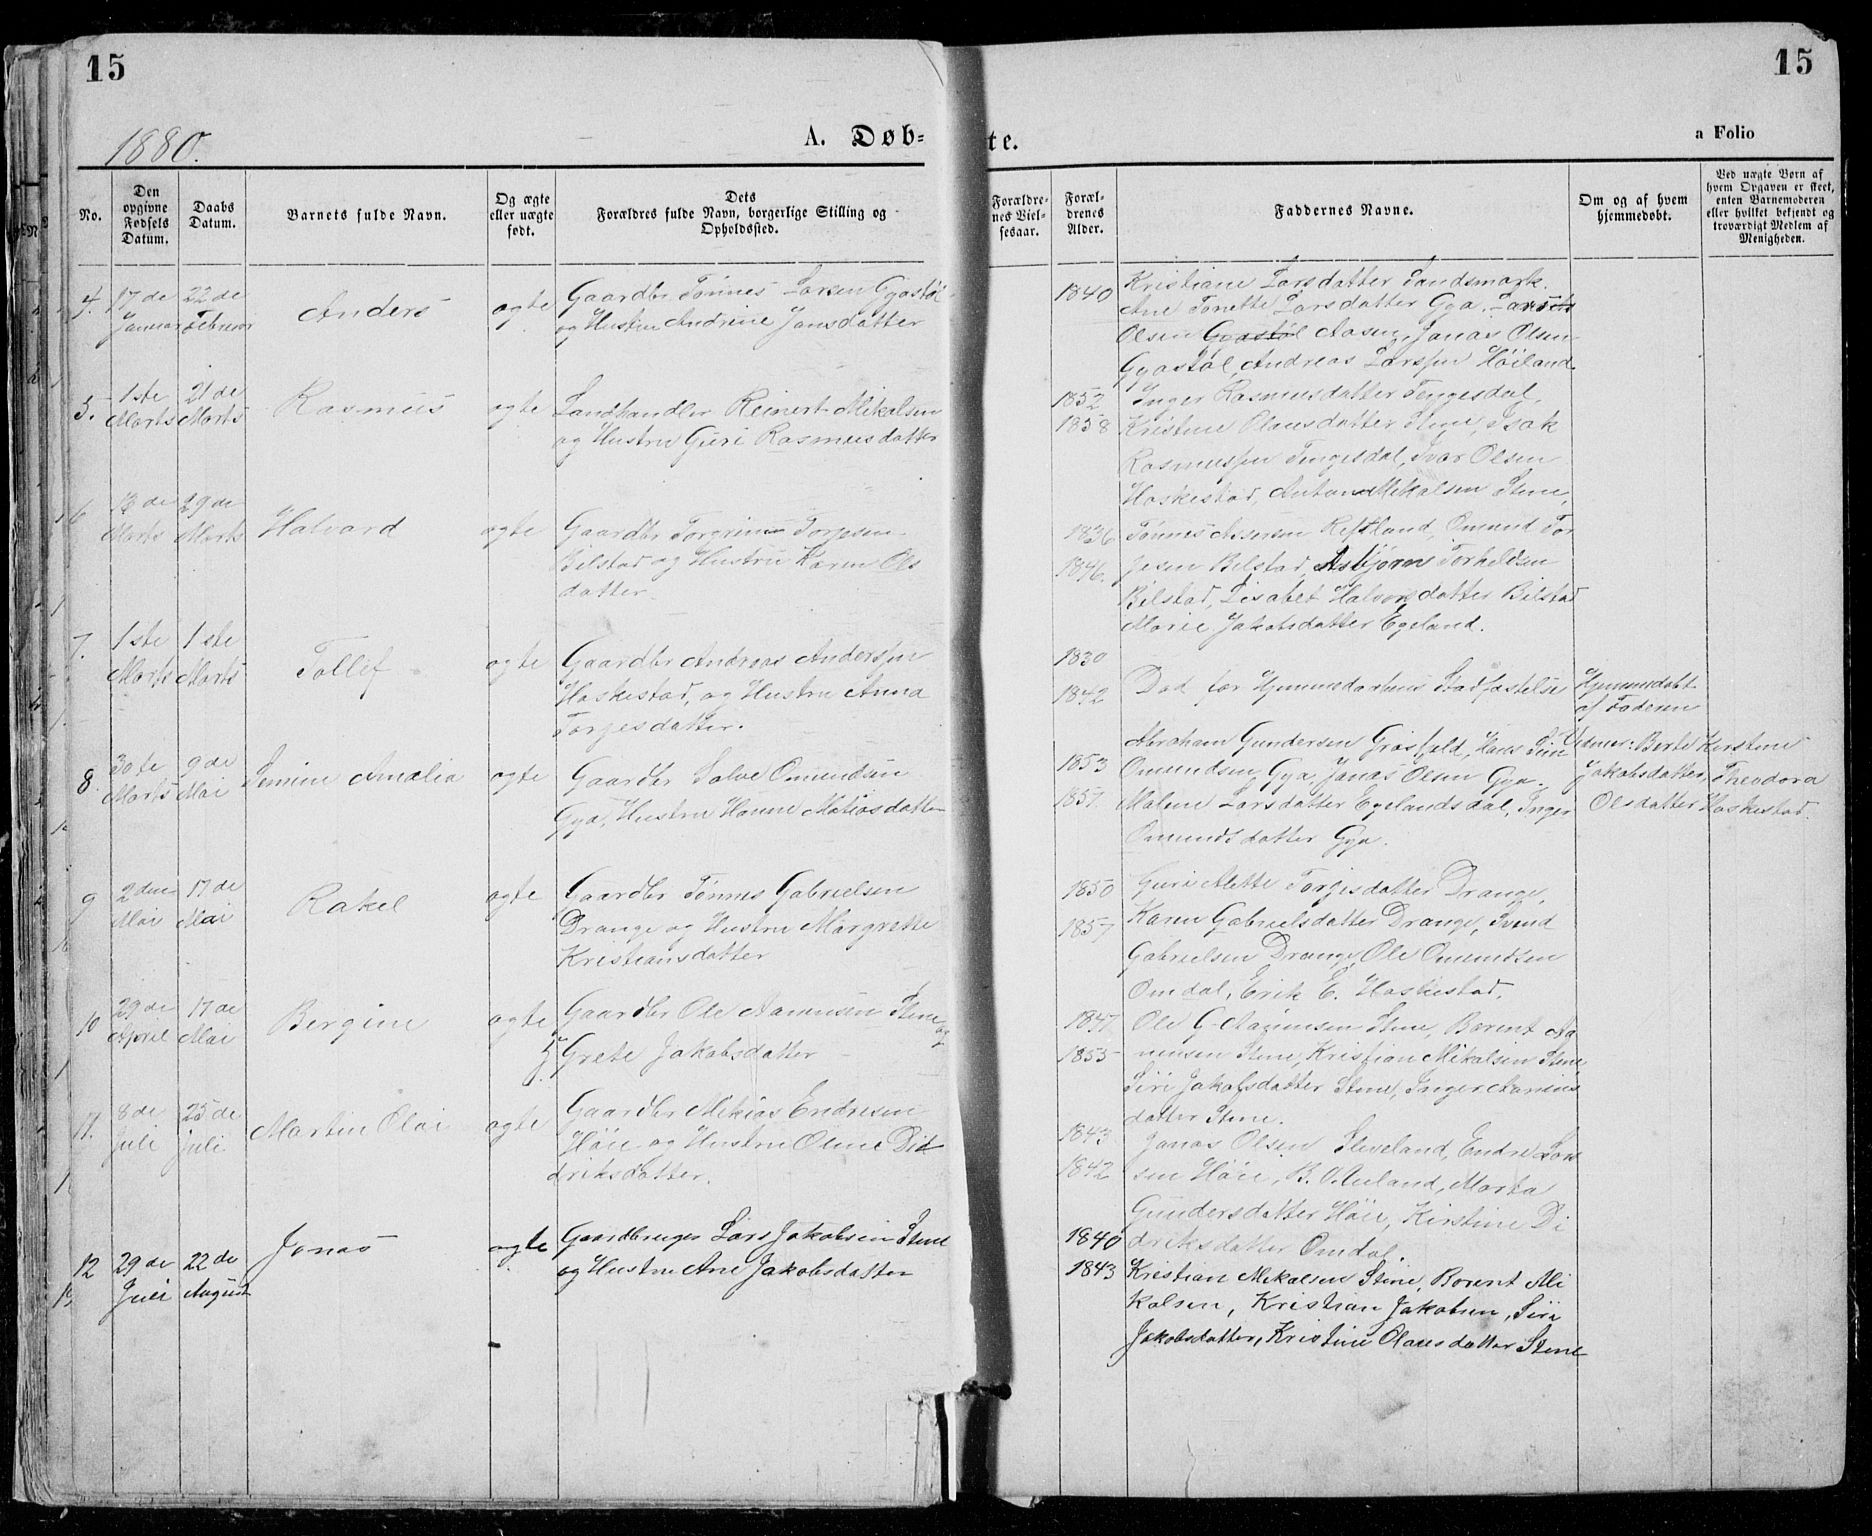 15
15
1880.
A. Døb-
te.
a Folio
No.
Den opgivne Fødsels Datum.
Daabs Datum.
Barnets fulde Navn.
Og ægte eller uægte født.
Dets Forældres fulde Navn, borgerlige Stilling og Opholdssted.
Forældrenes Vielsesaar.
Forældrenes Alder.
Faddernes Navne.
Om og af hvem hjemmedøbt.
Ved uægte Børn af hvem Opgaven er skeet, enten Barnemoderen eller hvilket bekjendt og troværdigt Medlem af Menigheden.
4. 17de Januar 22de Februar Anders ægte
Gaardbr Tønnes Larsen Gyastøl
og Hustru Andrine Jansdatter
1840
Kristiane Larsdatter Sandsmark.
Ane Tonette Larsdatter Gya,
Olsen Gyastøl Aasen, Janas Olsen
Gyastøl, Andreas Larssen Høiland.
5. 1ste Marts 21de Marts Rasmus ægte
Landhandler Reinert Mikalsen
og Hustru Guri Rasmusdatter
1852
1858
Inger Rasmusdatter Tengesdal,
Kristine Olausdatter Stene, Isak
Rasmussen Tengesdal, Ivar Olsen
Haskestad, Anton Mikalsen Stene,
6 13de Marts 29de Marts Halvard ægte
Gaardbr Torgrim Torjesen
Bilstad og Hustru Karen Ols
datter.
1836
1846.
Tønnes Assersen Reftland, Omund Tor
jesen Bilstad, Asbjørn Torkeldsen
Bilstad, Lisabet Halvorsdatter Bilstad
Marie Jakobsdatter Egeland.
7. 1ste Marts 1ste Marts Tollef ægte
Gaardbr Andreas Anderssen
Haskestad, og Hustru Anna
Torjesdatter.
1830
1842
Død før Hjemmedaabens Stadfæstelse
Hjemmedøbt
af Faderen
Vidner: Berte Kirstine
Jakobsdatter, Theodora
Olsdatter Haskestad.
8. 30te Marts 9de Mai Semine Amalia ægte
Gaardbr Salve Omundsen
Gya, Hustru Hanne Matiasdatter
1853
1857.
Abraham Gundersen Grøsfeld, Hans
Omundsen Gya, Janas Olsen Gya.
Malene Larsdatter Egelandsdal, Inger
Omundsdatter Gya.
9 2den Mai 17de Mai Rakel ægte
Gaardbr Tønnes Gabrielsen
Drange og Hustru Margrette
Kristiansdatter
1850
1857
Guri Alette Torjesdatter Drange,
Karen Gabrielsdatter Drange, Svend
Gabrielsen Drange, Ole Omundsen
Omdal, Erik E. Haskestad.
10 29de April 17de Mai Bergine ægte
Gaardbr Ole Aanensen Stene og
Grete Jakobsdatter
1847
1855
Ole G. Aanensen Stene, Borent Aa
nensen Stene, Kristian Mikalsen Stene
Siri Jakobsdatter Stene, Inger Aanens
datter Stene.
11. 8de Juli 25de Juli Martin Olai ægte
Gaardbr Mikias Endresen
Høie og Hustru Oline Did
driksdatter.
1843
1842
Janas Olsen Sleveland, Endre Lar
sen Høie, B. O. Auland, Marta
Gundersdatter Høie, Kirstine Di
driksdatter Omdal.
12 29de Juli 22de August Jonas ægte
Gaardbruger Lars Jakobsen Stene
og Hustru Ane Jakobsdatter
1840
1843
Kristian Mikalsen Stene, Borent Mi
kalsen, Kristian Jakobsen, Siri
Jakobsdatter, Kristine Olausdatter Stene